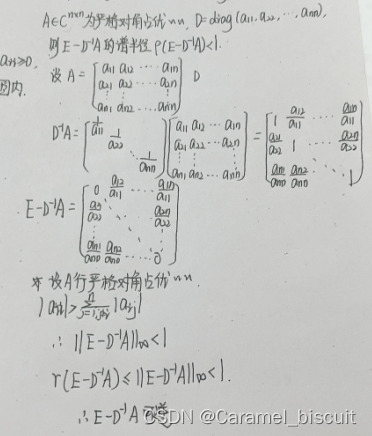 A∈C^{n×n}为严格对角占优, D=diag(a₁₁,a₂₂,…,aₙₙ),
则 E-D⁻¹A的谱半径ρ(E-D⁻¹A)<1.
≥0,
圆内.
设 A = [a₁₁ a₁₂ ⋯ a₁ₙ; a₂₁ a₂₂ ⋯ a₂ₙ; ⋮; aₙ₁ aₙ₂ ⋯ aₙₙ] D
D⁻¹A = [1/a₁₁ 1/a₂₂ ⋱ 1/aₙₙ] [a₁₁ a₁₂ ⋯ a₁ₙ; a₂₁ a₂₂ ⋯ a₂ₙ; ⋮; aₙ₁ aₙ₂ ⋯ aₙₙ] = [1 a₁₂/a₁₁ ⋯ a₁ₙ/a₁₁; a₂₁/a₂₂ 1 ⋯ a₂ₙ/a₂₂; aₙ₁/aₙₙ aₙ₂/aₙₙ ⋯ 1]
E-D⁻¹A = [0 a₁₂/a₁₁ ⋯ a₁ₙ/a₁₁; a₂₁/a₂₂ ⋱ a₂ₙ/a₂₂; ⋮; aₙ₁/aₙₙ aₙ₂/aₙₙ ⋯ 0]
设A行严格对角占优
∴ ||E-D⁻¹A||∞<1
r(E-D⁻¹A)≤||E-D⁻¹A||∞<1.
∴ E-D⁻¹A
CSDN @Caramel_biscuit